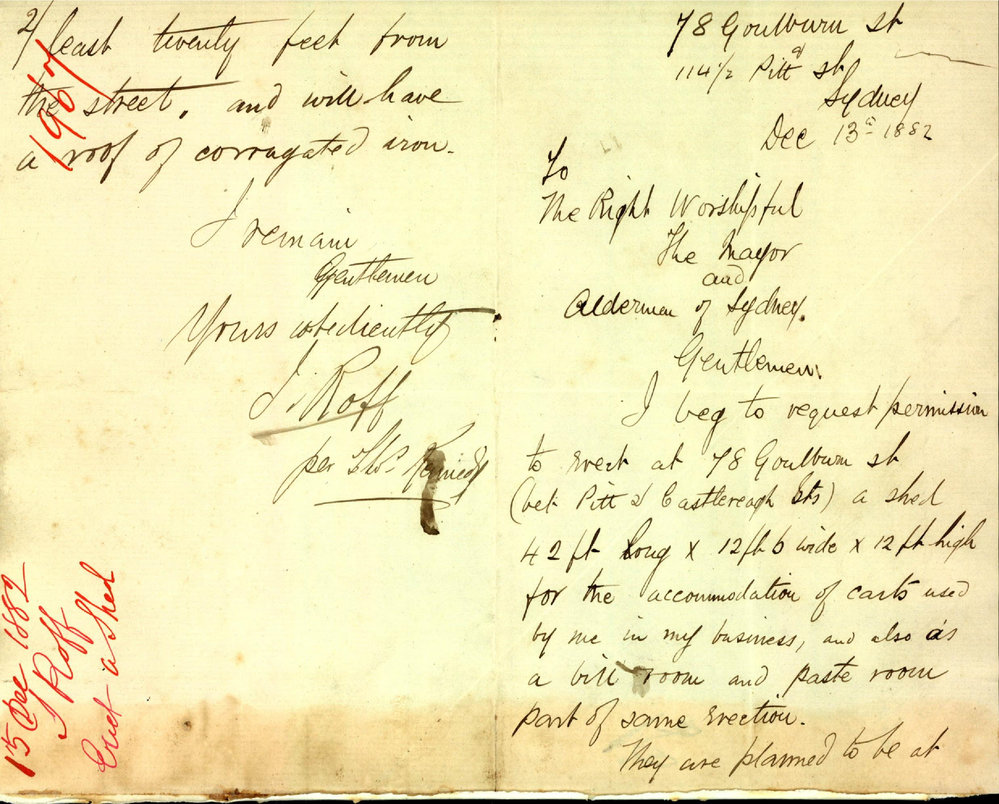 78 Goulburn st
114 1/2 Pitt st
Sydney
Dec 13th 1882
To
The Right Worshipful
The Mayor
and
Aldermen of Sydney.
Gentlemen:
I beg to request permission
to erect at 78 Goulburn st
(bet Pitt & Castlereagh Sts) a shed
42 ft long x 12 ft 6 wide x 12 ft high
for the accommodation of carts used
by me in my business, and also as
a bill room and paste room
part of same erection.
They are planned to be at
2/ least twenty feet from
the street, and will have
a roof of corrugated iron.
I remain
Gentlemen
Yours obediently
J. Roff
per Thos. Kennedy
15 Dec 1882
J Roff
Erect a Shed